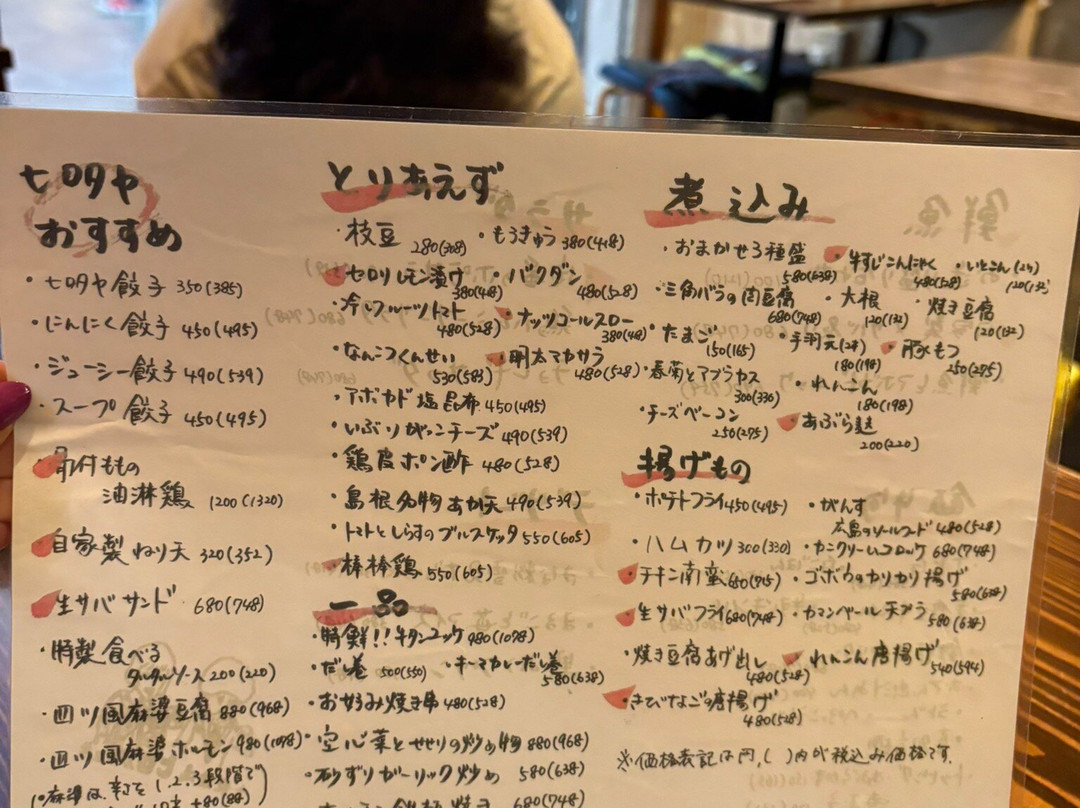 七口夕ヤ
おすすめ
・七口夕ヤ餃子 350(385)
・にんにく餃子 450(495)
・ジューシー餃子 490(539)
・スープ餃子 450(495)
・骨付もも
油淋鶏 1200(1320)
・自家製ねり天 320(352)
・生サバサンド 680(748)
・特製食べる
タルタルソース 200(220)
・四ツ国麻婆豆腐 880(968)
・四ツ国麻婆ホルモン 980(1078)
(。麻婆は、辛さを1.2.3段階で
+80(88)
とりあえず
・枝豆 280(308)
・もろきゅう 380(418)
・セロリレモン漬け 380(418)
・バクダン 480(528)
・冷しフルーツトマト 480(528)
・ナッツコールスロー 380(418)
・なんこつくんせい 530(583)
・明太マカサラ 480(528)
・アボカド塩昆布 450(495)
・いぶりがっこチーズ 490(539)
・鶏皮ポン酢 480(528)
・島根名物あか天 490(539)
・トマトとしらすのブルスケッタ 550(605)
・棒棒鶏 550(605)
一品
・特鮮!!牛タンユッケ 980(1078)
・だし巻 500(550)
・キーマカレーだし巻 580(638)
・お好み焼き串 480(528)
・空心菜とせせりの炒め物 880(968)
・砂ずりガーリック炒め 580(638)
680(748)
煮込み
・おまかせ3種盛 580(638)
・牛すじこんにゃく 480(528)
・いとこん(2ヶ) 120(132)
・三角バラの肉豆腐 680(748)
・大根 120(132)
・焼き豆腐 120(132)
・たまご 150(165)
・手羽元(2本) 180(198)
・豚もつ 250(275)
・春菊とアブラヤス 300(330)
・れんこん 180(198)
・チーズベーコン 250(275)
・あぶら麩 200(220)
揚げもの
・ポテトフライ 450(495)
・がんす
広島のソールフード 480(528)
・ハムカツ 300(330)
・カニクリームコロッケ 680(748)
・チキン南蛮 650(715)
・ゴボウのカリカリ揚げ 580(638)
・生サバフライ 680(748)
・カマンベール天ぷら 580(638)
・焼き豆腐あげ出し 480(528)
・れんこん唐揚げ 540(594)
・きびなごの唐揚げ 480(528)
※価格表記は円、( )内が税込み価格です。